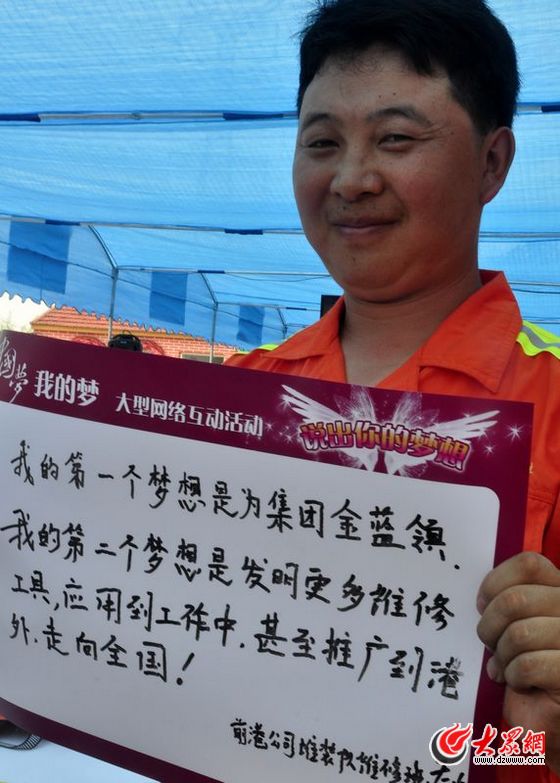 國夢 我的梦 大型网络互动活动
说出你的梦想
我的第一个梦想是为集团金蓝领.
我的第二个梦想是发明更多维修
工具,应用到工作中.甚至推广到港
外.走向全国!
前港公司堆装队维修班
大眾網
www.dzwww.com